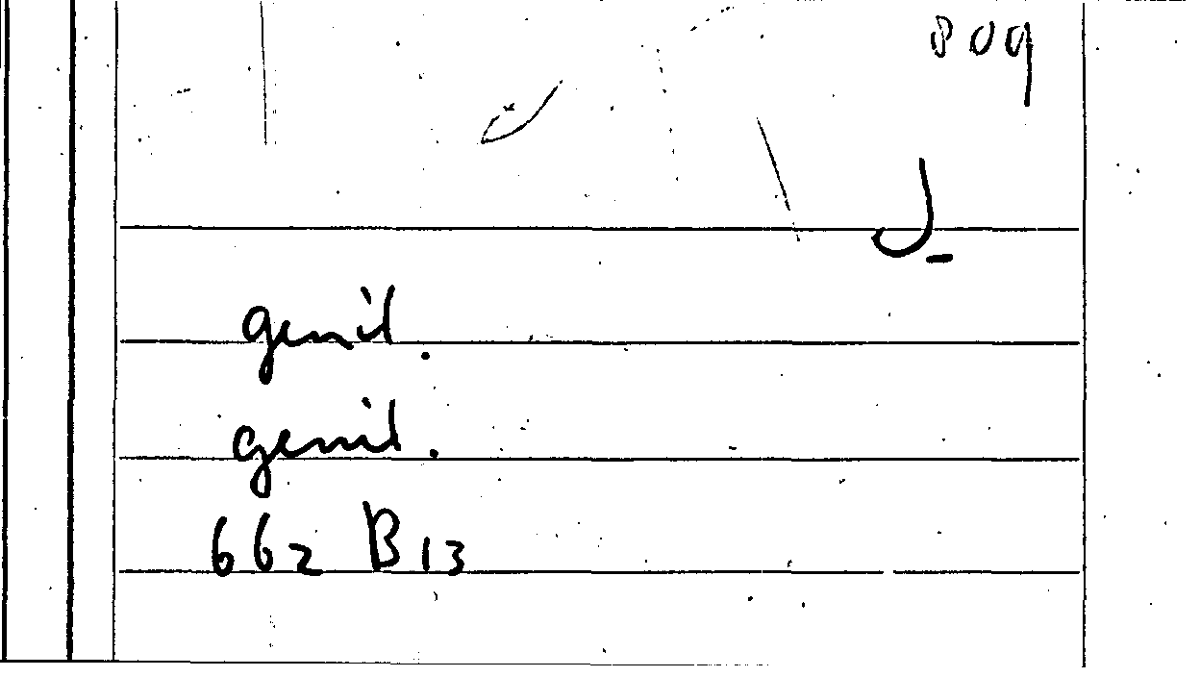 809
J.
genit.
genit.
662 B13